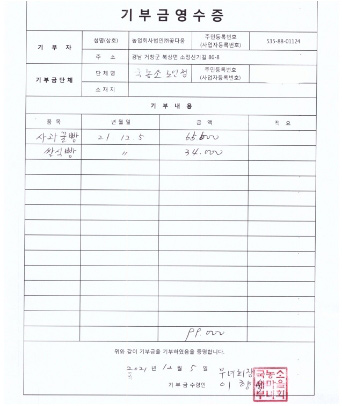 기부금영수증
기 부 자 성명(상호) 농업회사법인㈜꽃다움 주민등록번호 (사업자등록번호) 535-88-01124
주 소 경남 거창군 북상면 소정산기길 86-8
기부금단체 단체명 주민등록번호 (사업자등록번호)
소재지
기 부 내 용
품 목 년 월 일 금 액 적 요
사과꿀빵 21. 12. 5 65,000
쌀식빵 〃 34,000
99,000
위와 같이 기부금을 기부하였음을 증명합니다.
2021 년 12 월 5 일 부녀회장
기부금수령인 이
국농소
새마을
부녀회